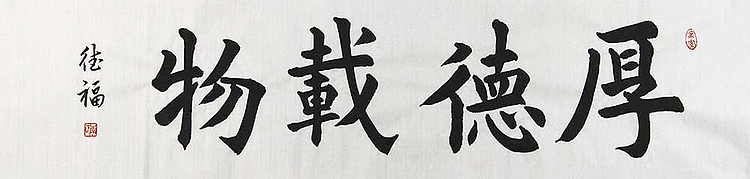 厚德載物
德福